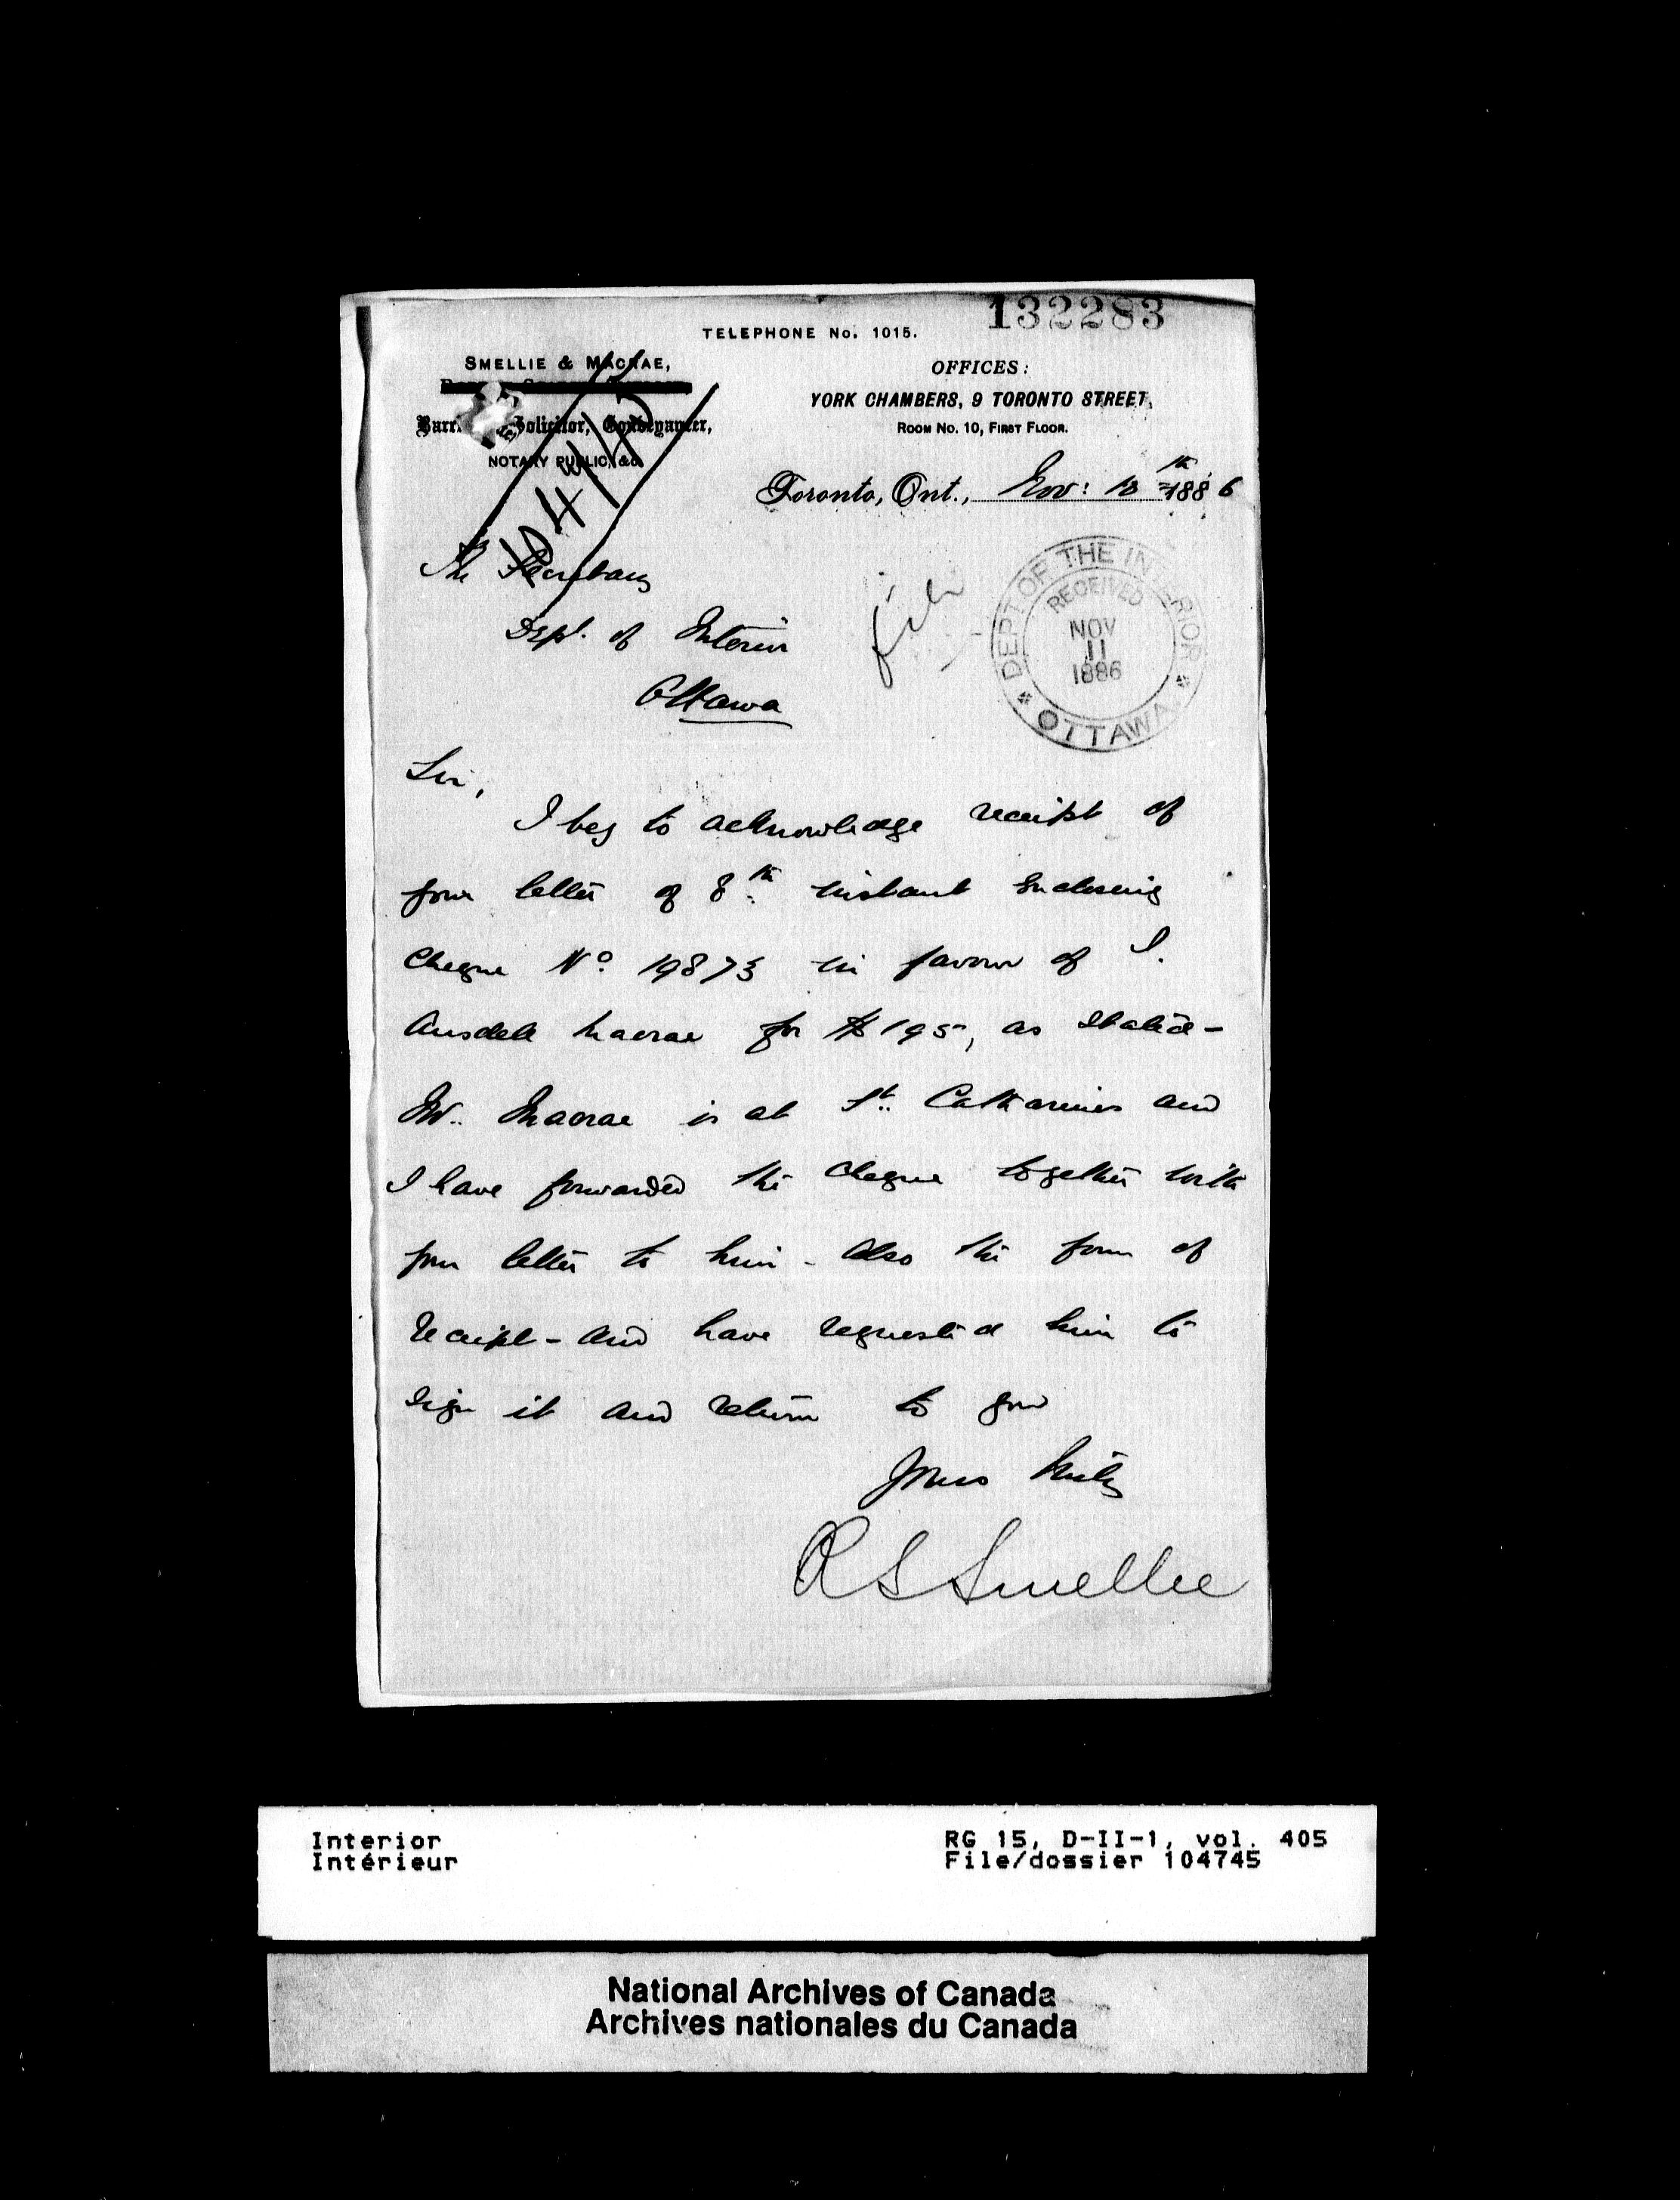 132283
TELEPHONE No. 1015.
SMELLIE & MACRAE,
Solicitor, Conveyancer,
NOTARY PUBLIC, &c.
OFFICES:
YORK CHAMBERS, 9 TORONTO STREET,
ROOM No. 10, FIRST FLOOR.
Toronto, Ont., Nov: 10th 1886
file
The Secretary
Dept. of Interior
Ottawa
DEPT. OF THE INTERIOR
RECEIVED
NOV
11
1886
OTTAWA
Sir,
I beg to acknowledge receipt of
your letter of 8th instant enclosing
Cheque No. 19873 in favour of J.
Ansdell Macrae for $195, as stated -
Mr. Macrae is at St. Catharines and
I have forwarded the cheque together with
your letter to him - also the form of
receipt - and have requested him to
sign it and return to you
Yours truly
R S Smellie
Interior
Intérieur
RG 15, D-II-1, vol. 405
File/dossier 104745
National Archives of Canada
Archives nationales du Canada